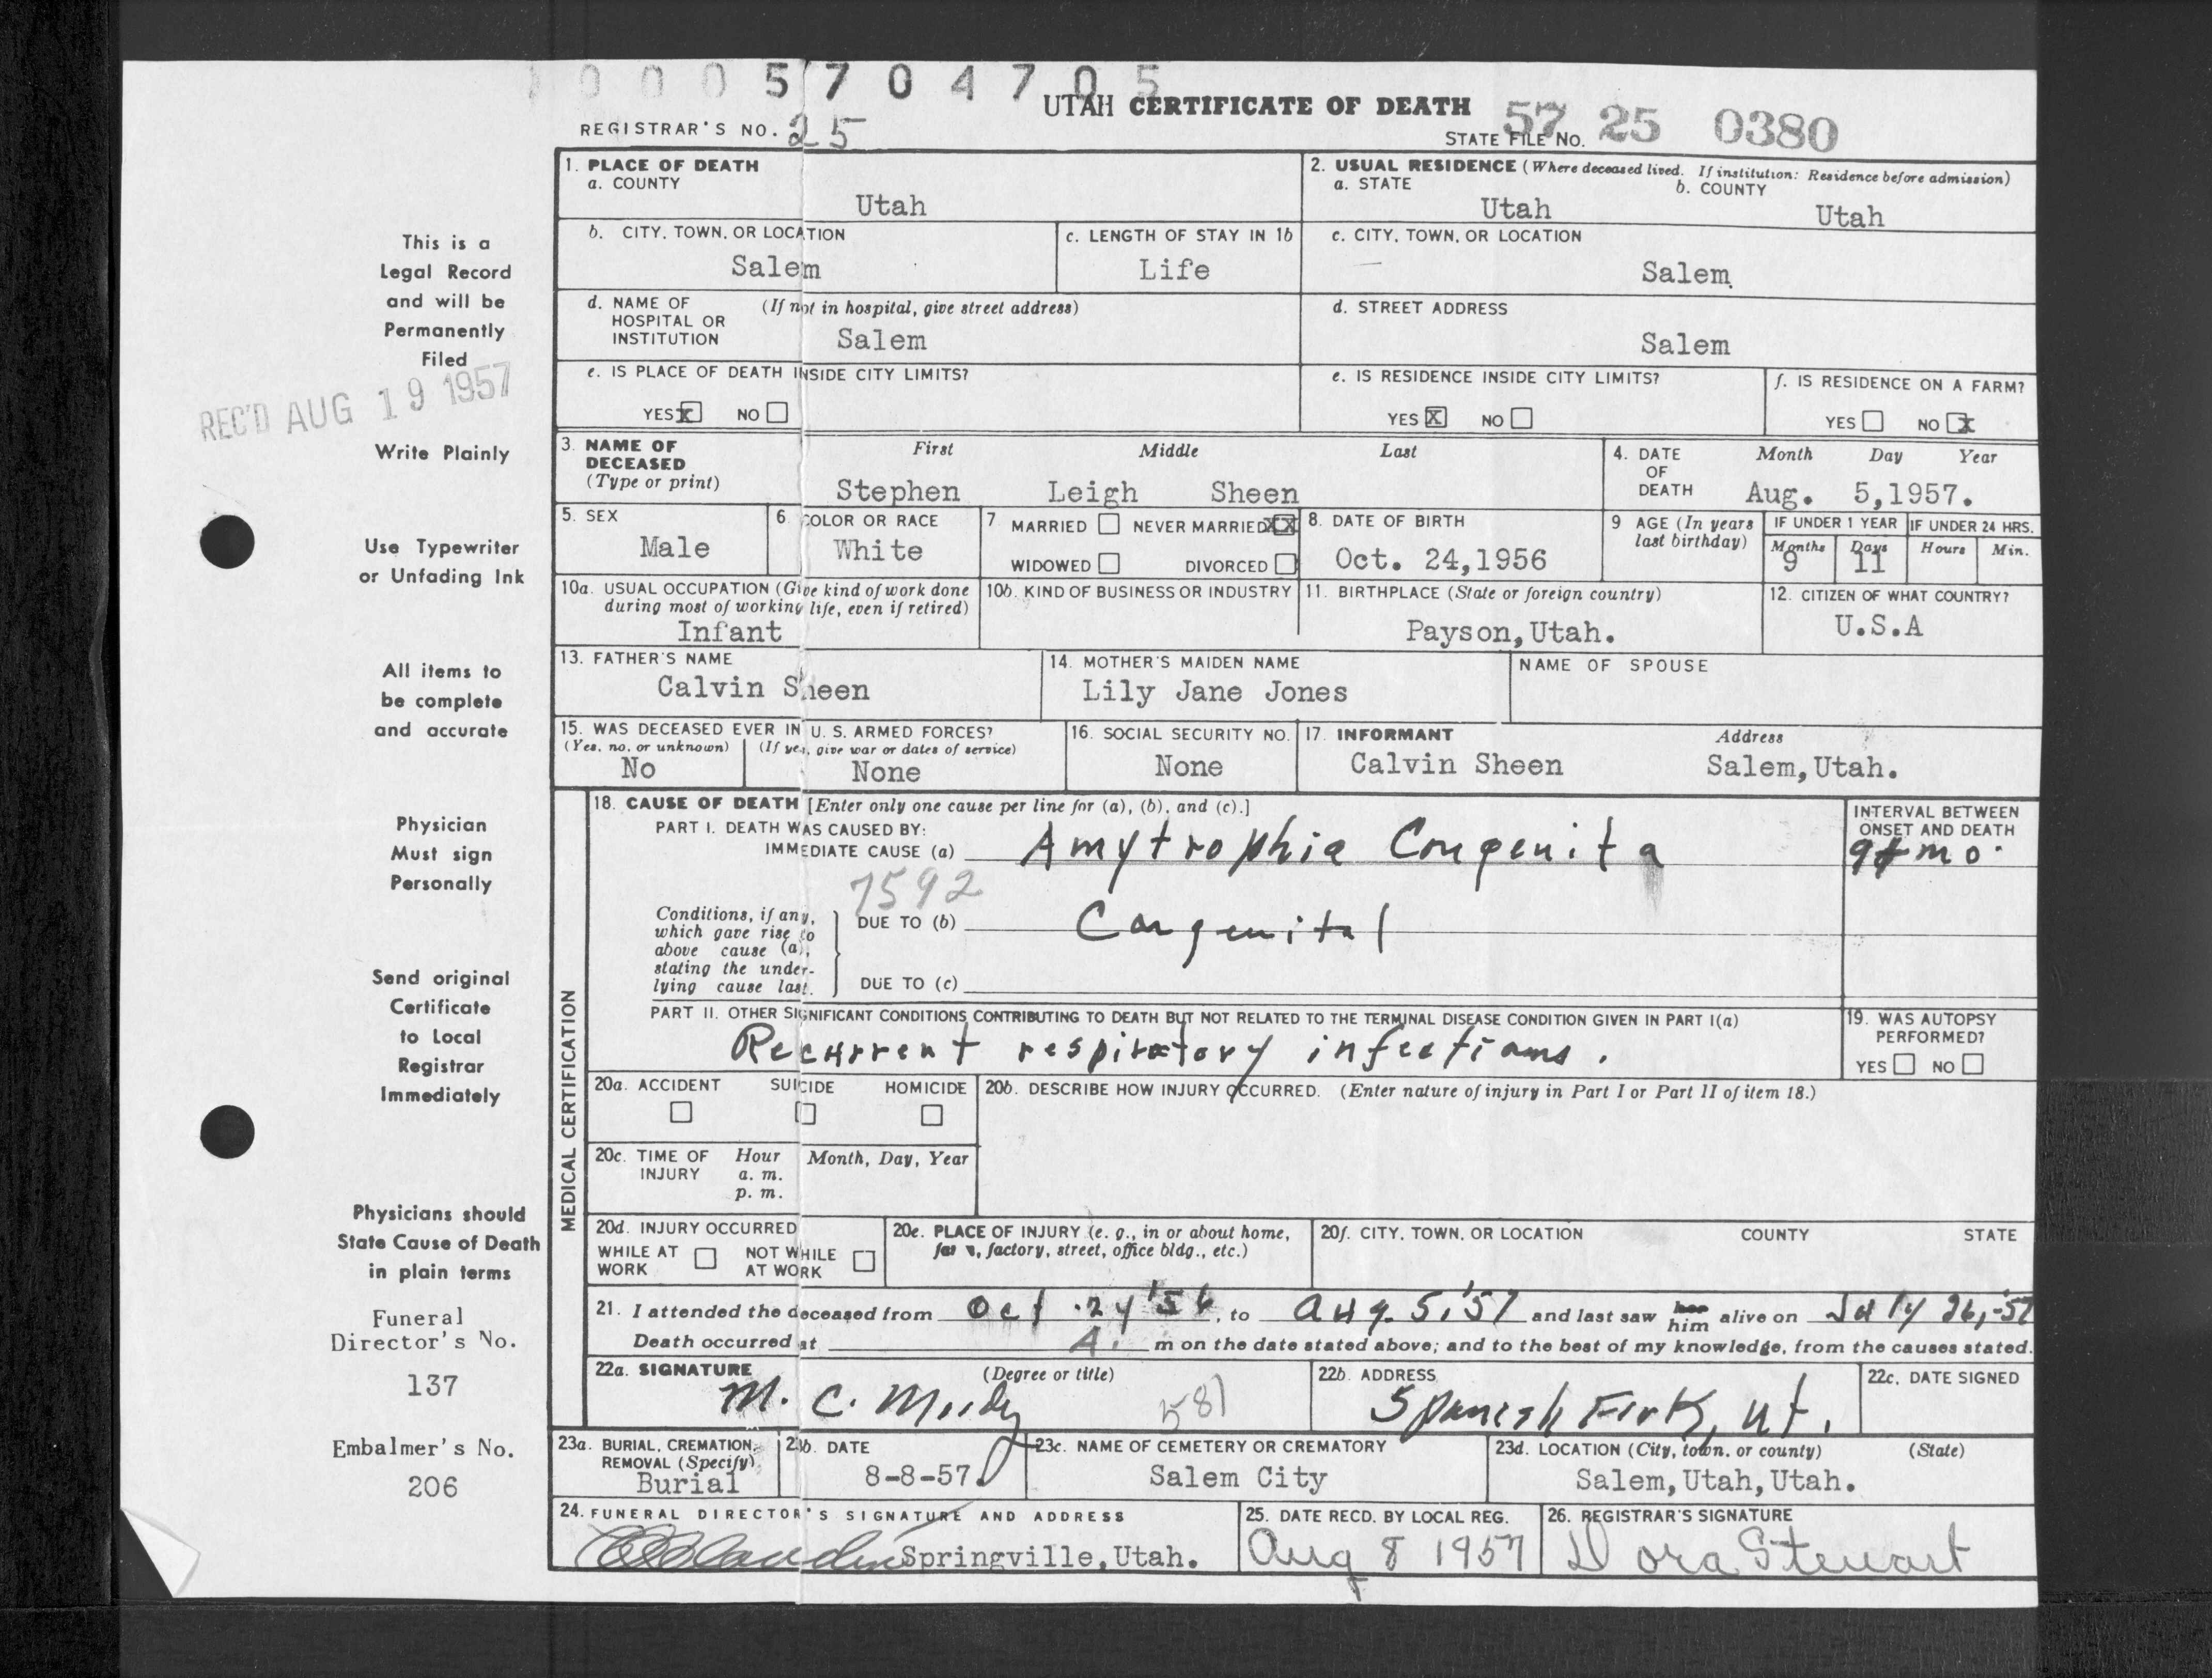 0005704705
UTAH CERTIFICATE OF DEATH
REGISTRAR'S NO. 25
STATE FILE NO. 57 25 0380
This is a
Legal Record
and will be
Permanently
Filed
REC'D AUG 19 1957
Write Plainly
Use Typewriter
or Unfading Ink
All items to
be complete
and accurate
Physician
Must sign
Personally
Send original
Certificate
to Local
Registrar
Immediately
Physicians should
State Cause of Death
in plain terms
Funeral
Director's No.
137
Embalmer's No.
206
1. PLACE OF DEATH
a. COUNTY
Utah
2. USUAL RESIDENCE (Where deceased lived. If institution: Residence before admission)
a. STATE
Utah
b. COUNTY
Utah
b. CITY, TOWN, OR LOCATION
Salem
c. LENGTH OF STAY IN 1b
Life
c. CITY, TOWN, OR LOCATION
Salem
d. NAME OF HOSPITAL OR INSTITUTION (If not in hospital, give street address)
Salem
d. STREET ADDRESS
Salem
e. IS PLACE OF DEATH INSIDE CITY LIMITS?
YES X NO
e. IS RESIDENCE INSIDE CITY LIMITS?
YES X NO
f. IS RESIDENCE ON A FARM?
YES NO X
3. NAME OF DECEASED (Type or print)
First Middle Last
Stephen Leigh Sheen
4. DATE OF DEATH
Month Day Year
Aug. 5,1957.
5. SEX
Male
6 COLOR OR RACE
White
7 MARRIED NEVER MARRIED XX
WIDOWED DIVORCED
8. DATE OF BIRTH
Oct. 24,1956
9 AGE (In years last birthday)
IF UNDER 1 YEAR
Months Days
9 11
IF UNDER 24 HRS.
Hours Min.
10a. USUAL OCCUPATION (Give kind of work done during most of working life, even if retired)
Infant
10b. KIND OF BUSINESS OR INDUSTRY
11. BIRTHPLACE (State or foreign country)
Payson,Utah.
12. CITIZEN OF WHAT COUNTRY?
U.S.A
13. FATHER'S NAME
Calvin Sheen
14. MOTHER'S MAIDEN NAME
Lily Jane Jones
NAME OF SPOUSE
15. WAS DECEASED EVER IN U. S. ARMED FORCES?
(Yes, no, or unknown) (If yes, give war or dates of service)
No None
16. SOCIAL SECURITY NO.
None
17. INFORMANT Address
Calvin Sheen Salem,Utah.
MEDICAL CERTIFICATION
18. CAUSE OF DEATH [Enter only one cause per line for (a), (b), and (c).]
PART I. DEATH WAS CAUSED BY:
IMMEDIATE CAUSE (a) Amytrophia Congenita
7592
INTERVAL BETWEEN ONSET AND DEATH
9+ mo.
Conditions, if any, which gave rise to above cause (a), stating the underlying cause last.
DUE TO (b) Congenital
DUE TO (c)
PART II. OTHER SIGNIFICANT CONDITIONS CONTRIBUTING TO DEATH BUT NOT RELATED TO THE TERMINAL DISEASE CONDITION GIVEN IN PART I(a)
Recurrent respiratory infections.
19. WAS AUTOPSY PERFORMED?
YES NO
20a. ACCIDENT SUICIDE HOMICIDE
20b. DESCRIBE HOW INJURY OCCURRED. (Enter nature of injury in Part I or Part II of item 18.)
20c. TIME OF INJURY Hour a. m. p. m. Month, Day, Year
20d. INJURY OCCURRED
WHILE AT WORK NOT WHILE AT WORK
20e. PLACE OF INJURY (e. g., in or about home, farm, factory, street, office bldg., etc.)
20f. CITY, TOWN, OR LOCATION COUNTY STATE
21. I attended the deceased from Oct. 24 '56, to Aug. 5, '57 and last saw her him alive on July 26, -57
Death occurred at A. m on the date stated above; and to the best of my knowledge, from the causes stated.
22a. SIGNATURE (Degree or title)
M. C. Moody 581
22b. ADDRESS
Spanish Fork, Ut.
22c. DATE SIGNED
23a. BURIAL, CREMATION, REMOVAL (Specify)
Burial
23b. DATE
8-8-57
23c. NAME OF CEMETERY OR CREMATORY
Salem City
23d. LOCATION (City, town, or county) (State)
Salem,Utah,Utah.
24. FUNERAL DIRECTOR'S SIGNATURE AND ADDRESS
Springville,Utah.
25. DATE RECD. BY LOCAL REG.
Aug 8 1957
26. REGISTRAR'S SIGNATURE
Dora Stewart